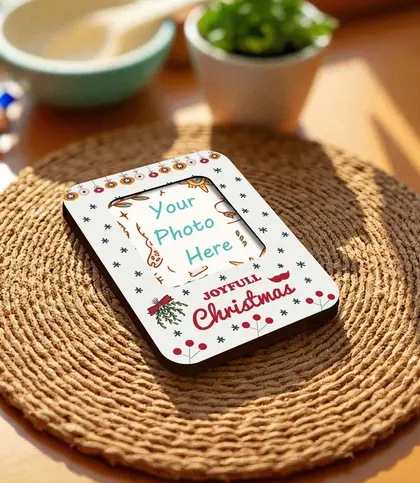 Your
Photo
Here
JOYFULL
Christmas